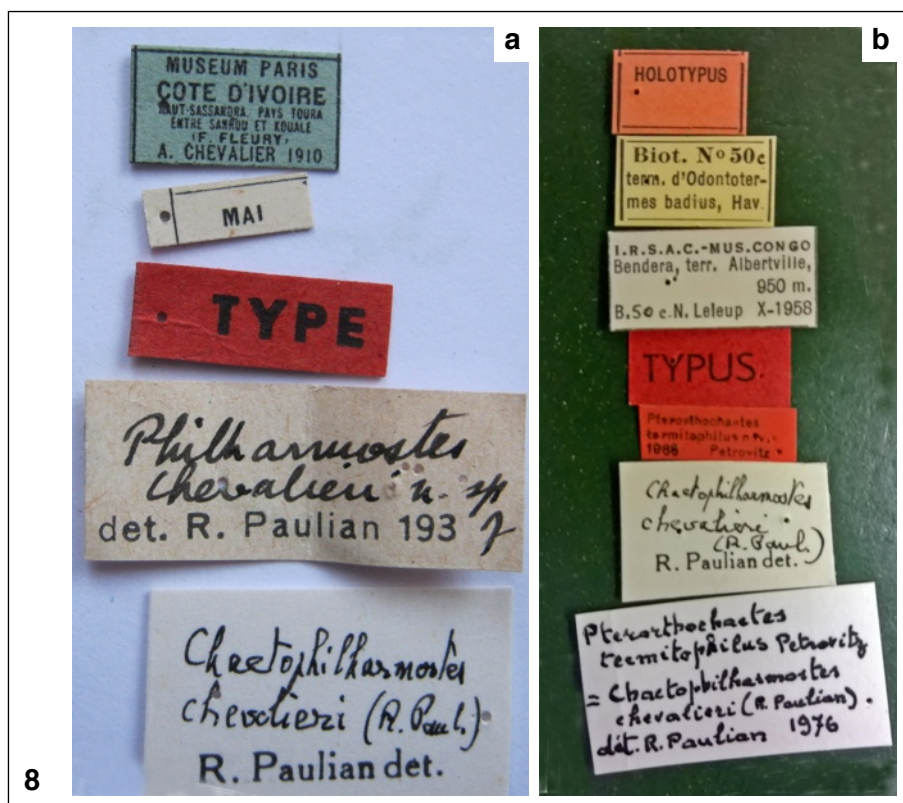 a
MUSEUM PARIS
COTE D'IVOIRE
HAUT-SASSANDRA, PAYS TOURA
ENTRE SANROU ET KOUALE
(F. FLEURY)
A. CHEVALIER 1910
MAI
TYPE
Philharmostes
chevalieri n. sp
det. R. Paulian 193
Chaetophilharmostes
chevalieri (R. Paul.)
R. Paulian det.
8
b
HOLOTYPUS
Biot. No 50c
term. d'Odontoter-
mes badius, Hav.
I.R.S.A.C.-MUS.CONGO
Bendera, terr. Albertville,
950 m.
B.50c. N. Leleup X-1958
TYPUS.
Pterosthochaetes
termitophilus
1966 Petrovitz
Chaetophilharmostes
chevalieri
(R. Paul.)
R. Paulian det.
Pterorthochaetes
termitophilus Petrovitz
= Chaetophilharmostes
chevalieri (R. Paulian).
dét. R. Paulian 1976